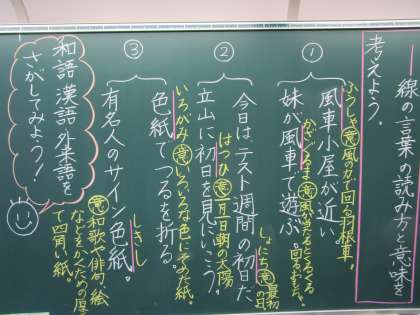 ―線の言葉の読み方と意味を
考えよう。
①
風車小屋が近い。
ふうしゃ 意 風力で回る羽根車。
妹が風車で遊ぶ。
かざぐるま 意 風が当たるとくるくる
回るおもちゃ。
②
今日は、テスト週間の初日だ。
しょにち 意 最初
の日
立山に初日を見にいこう。
はつひ 意 一月一日の朝の太陽
③
色紙でつるを折る。
いろがみ 意 いろいろな色にそめた紙。
有名人のサイン色紙。
しきし
意 和歌や俳句、絵
などをかくための厚
て四角い紙。
和語 漢語 外来語を
さがしてみよう!